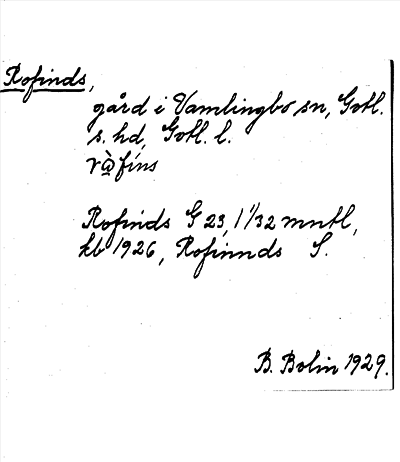 Rofinds,
gård i Vamlingbo sn, Gotl.
s. hd, Gotl. l.
Rofinds G 23, 1 1/32 mntl,
kb 1926, Rofinnds S.
B. Bolin 1929.